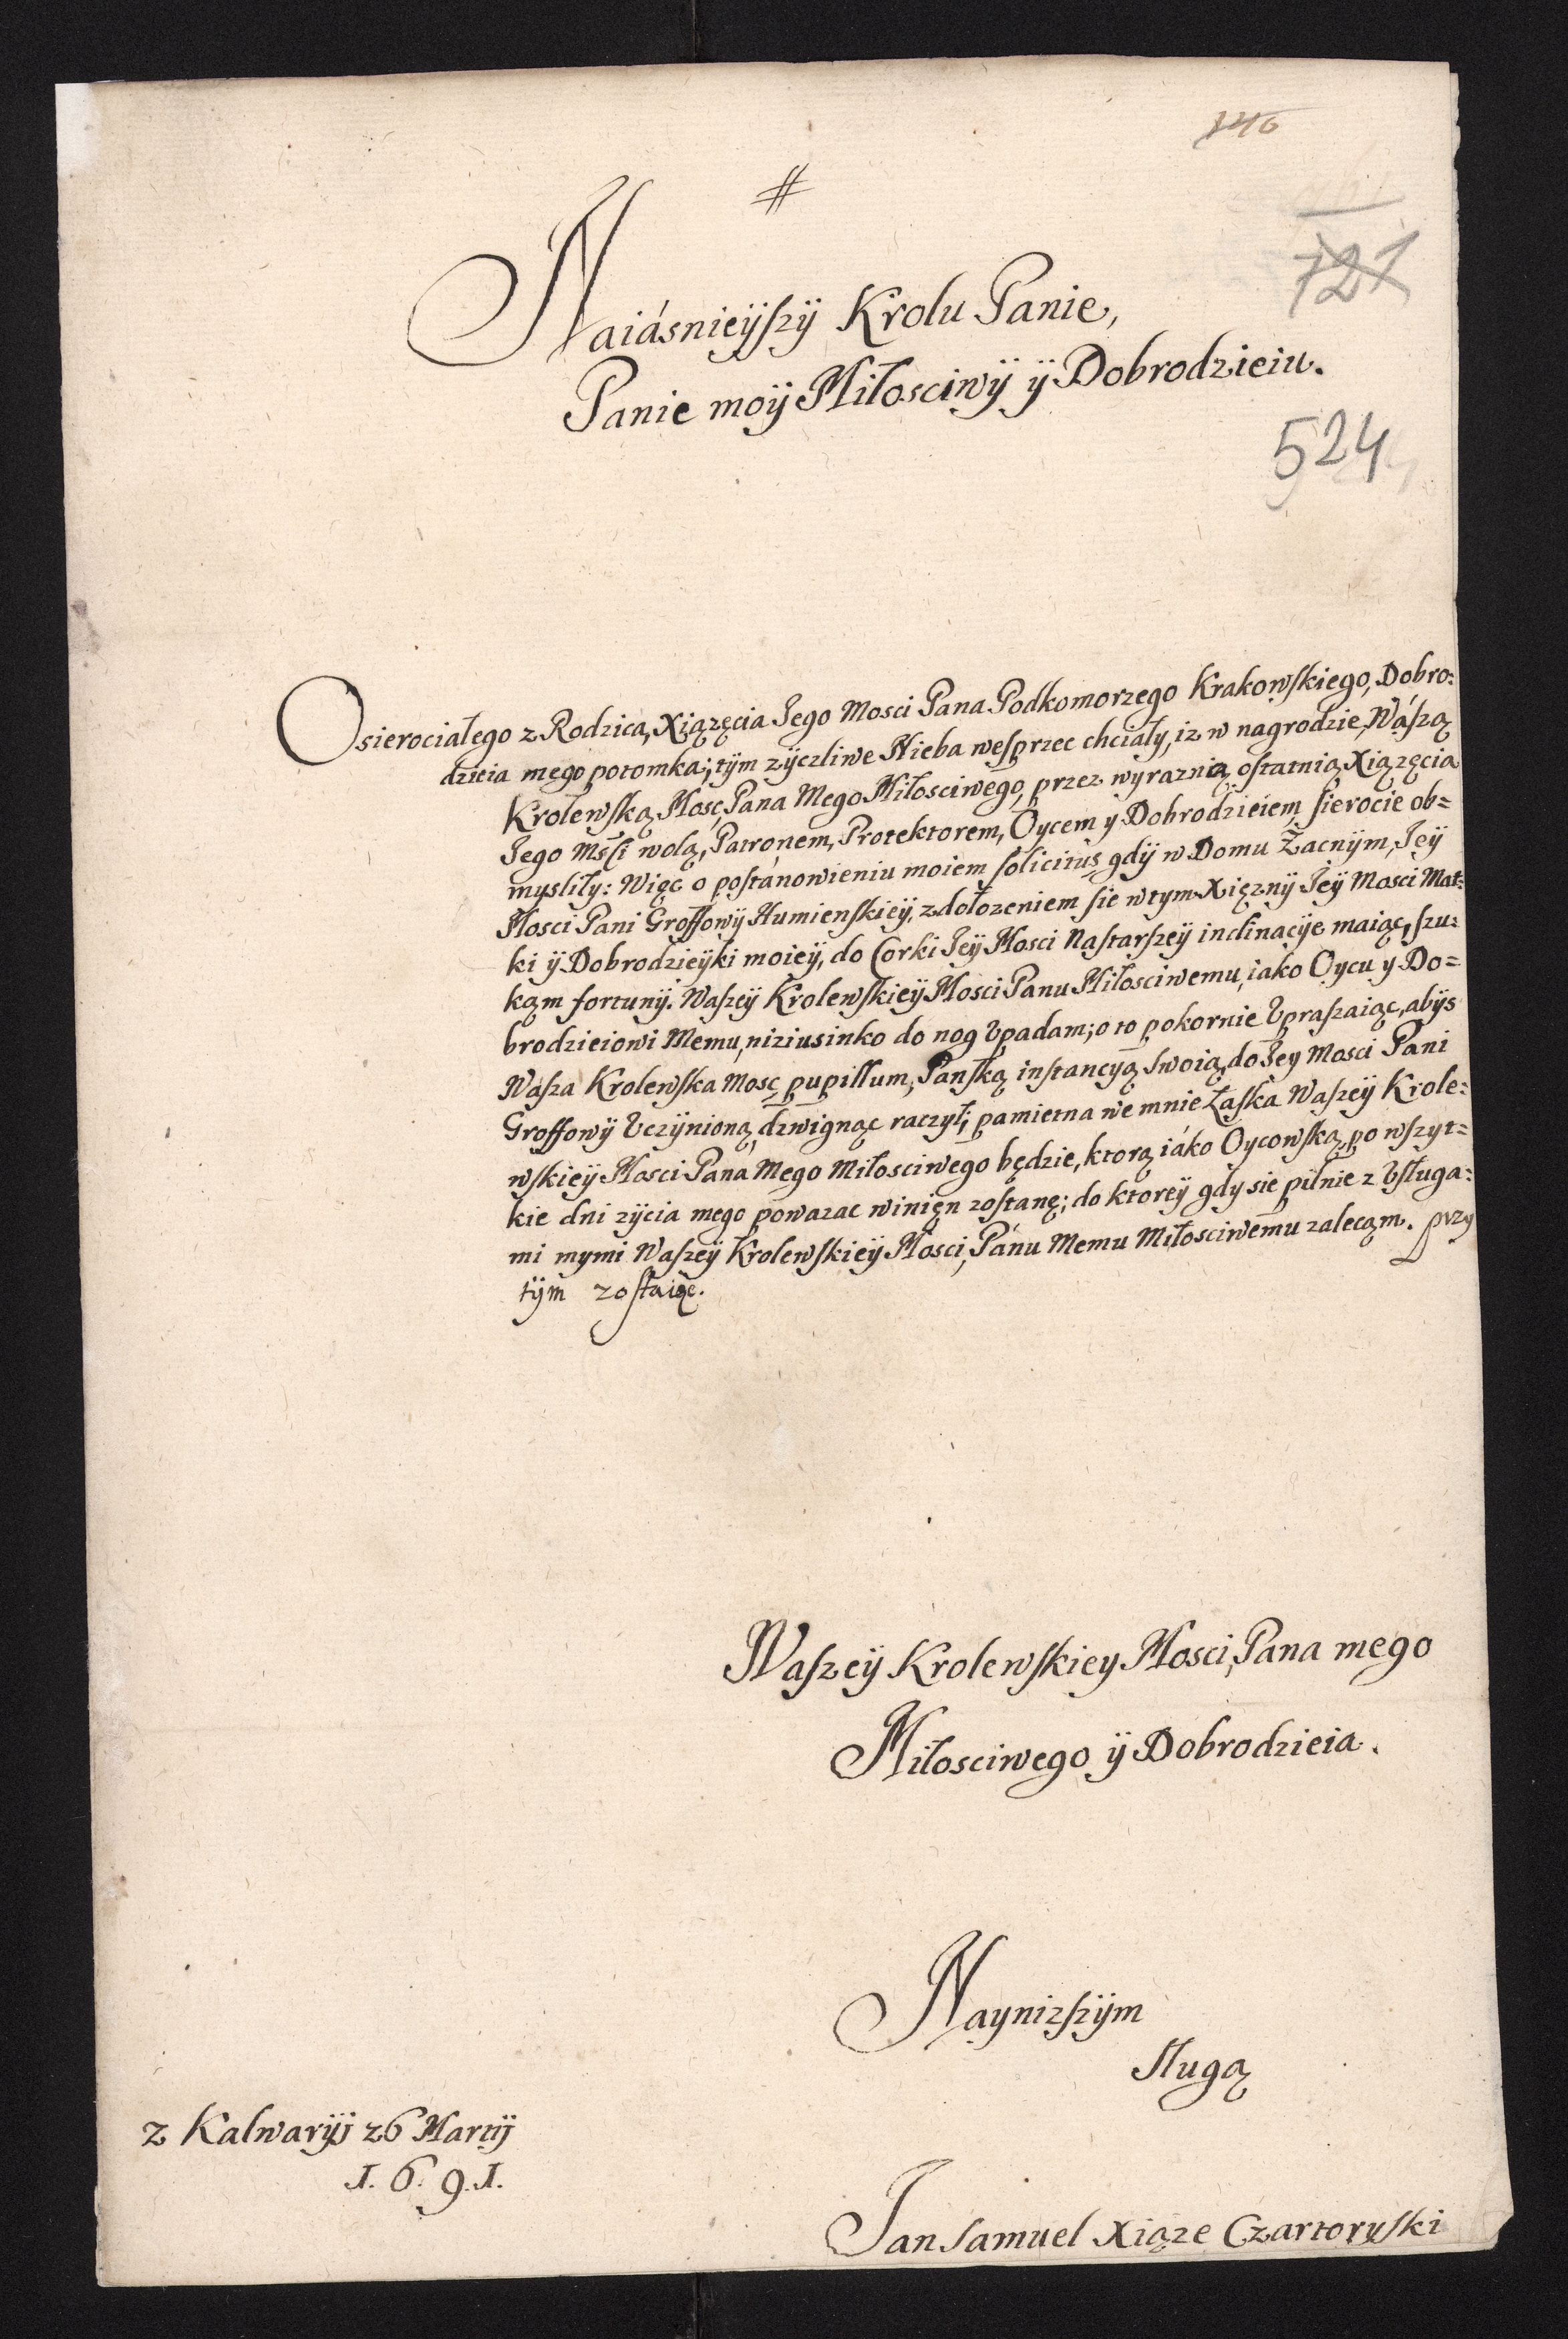 146
#
Naiásnieÿszÿ Krolu Panie,
721
Panie moÿ Miłosciwÿ ÿ Dobrodzieiu.
524
Osierociałego z Rodzica, Xiązęcia Jego Mosci Pana Podkomorzego Krakowskiego, Dobro:
dzieia mego potomka; tÿm zÿczliwe Nieba wesprzec chciały, iz w nagrodzie, Wászą
Krolewską Mosc, Pana Mego Miłosciwego, przez wyraznią ostatnią Xiązęcia
Jego Msci wolą, Patronem, Protektorem, Oycem y Dobrodzieiem sierocie ob=
mysliły: Więc o postánowieniu moiem solicitus, gdÿ w Domu Zacnÿm, Jeÿ
Mosci Pani Groffowÿ Humienskieÿ, z dołozeniem sie w tym Xięznÿ Jeÿ Mosci Mat:
ki ÿ Dobrodzieÿki moieÿ, do Corki Jeÿ Mosci Nastarszeÿ inclinacÿe maiąc, szu:
kąm fortunÿ. Waszeÿ Krolewskieÿ Mosci Panu Miłosciwemu, iako Oycu y Do=
brodzieiowi Memu, niziusinko do nog Upadam; o to pokornie Upraszaiąc, abÿs
Wasza Krolewska Mosc pupillum, Panską instancyą swoią, do Jey Mosci Pani
Groffowÿ Uczÿnioną, dzwignąc raczył; pamietna we mnie Łaska Waszeÿ Krole:
wskieÿ Mosci Pana Mego Miłosciwego będzie, ktorą iáko Oycowską, po wszyt=
kie dni zÿcia mego powazac winięn zostanę; do ktoreÿ gdy sie pilnie z Usługa:
mi mymi Waszeÿ Krolewskieÿ Mosci, Pánu Memu Miłosciwemu zalecąm. przy
tÿm zostaiąc.
Waszeÿ Krolewskiey Mosci, Pana mego
Miłosciwego ÿ Dobrodzieia.
Naynizszÿm
Sługą
z Kalwarÿj 26 Martij
1.6.9.1.
Jan Samuel Xiąze Czartoryski